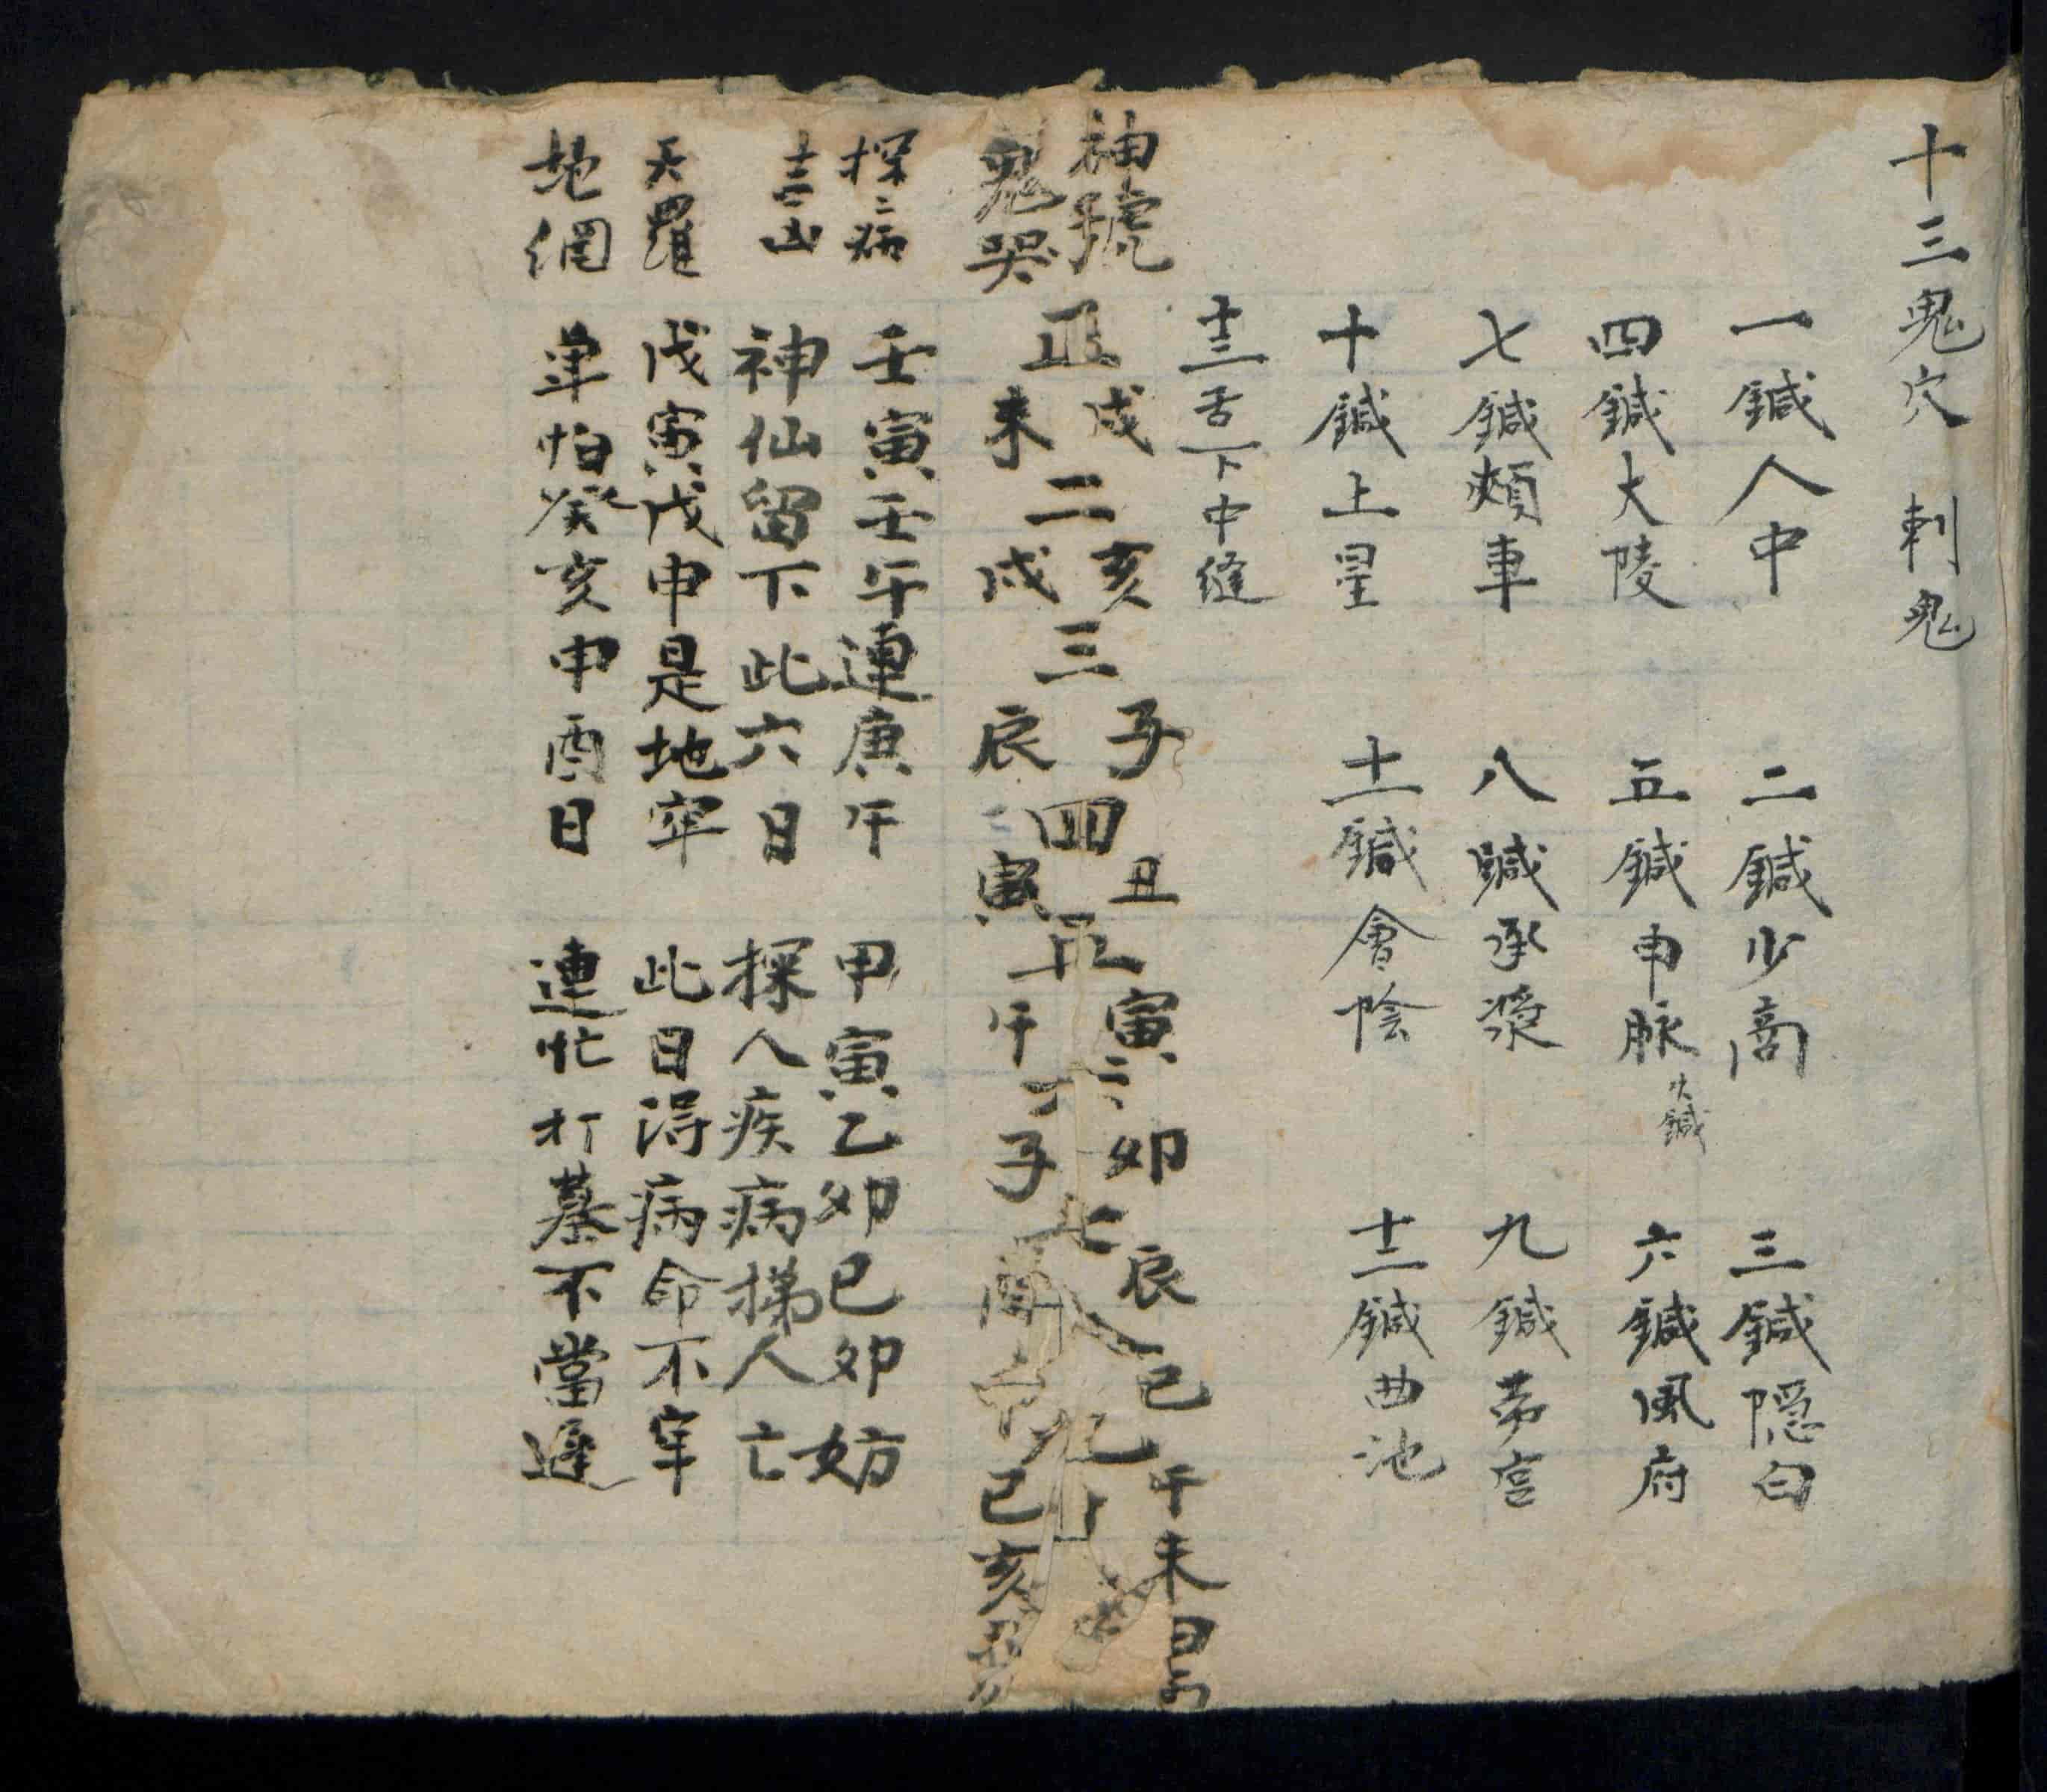 十三鬼穴 刺鬼
一鍼人中 二鍼少商 三鍼隱白
四鍼大陵 五鍼申脉火鍼 六鍼風府
七鍼頰車 八鍼承漿 九鍼勞宮
十鍼上星 十一鍼會陰 十二鍼曲池
十三舌下中縫
神號 戌 亥 子 丑 寅 卯 辰 巳 午 未
正 二 三 四 五 六 七 八 九 十
鬼哭 未 戌 辰 寅 午 子 酉 申 巳 亥
探病 壬寅壬午連庚午 甲寅乙卯己卯妨
神仙留下此六日 探人疾病替人亡
天羅 戊寅戊申是地牢 此日得病命不牢
地網 單怕癸亥申酉日 連忙打墓不當遲